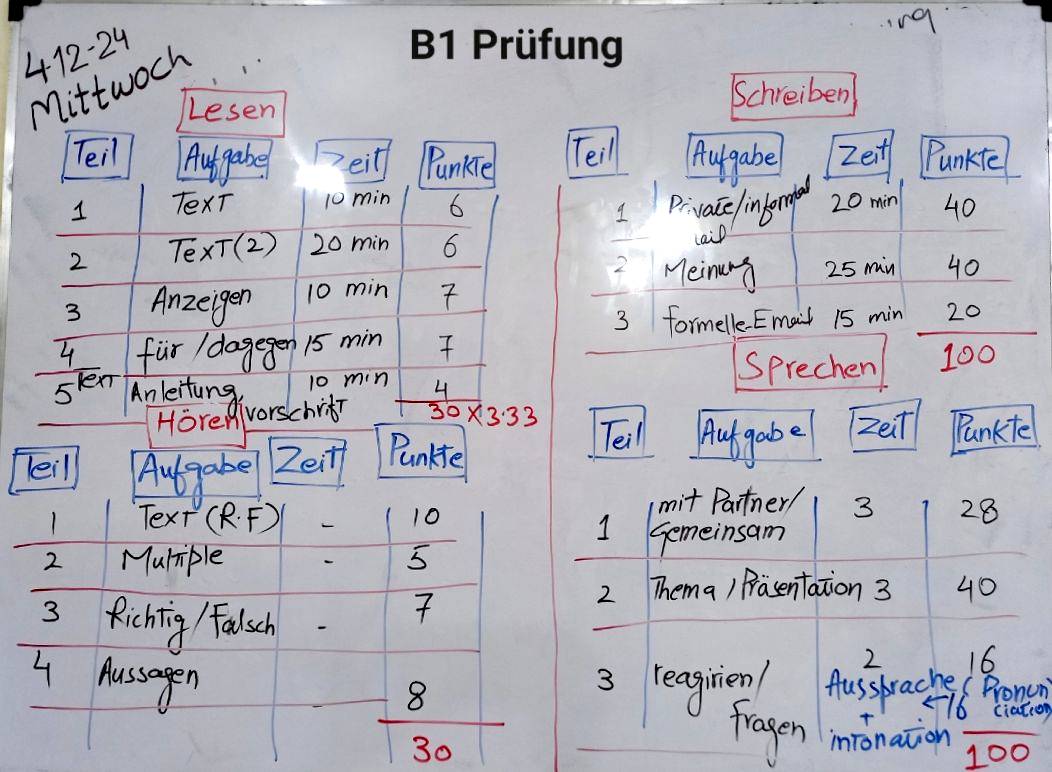 B1 Prüfung
4-12-24
Mittwoch
Lesen
Teil Aufgabe Zeit Punkte
1 Text 10 min 6
2 Text (2) 20 min 6
3 Anzeigen 10 min 7
4 für/dagegen 15 min 7
5 Text Anleitung, 10 min 4
vorschrift 30 x 3.33
Hören
Teil Aufgabe Zeit Punkte
1 Text (R.F) - 10
2 Multiple - 5
3 Richtig/Falsch - 7
4 Aussagen 8
30
Schreiben
Teil Aufgabe Zeit Punkte
1 Private/informal 20 min 40
2 Meinung 25 min 40
3 formelle-Email 15 min 20
100
Sprechen
Teil Aufgabe Zeit Punkte
1 mit Partner/ 3 28
Gemeinsam
2 Thema/Präsentation 3 40
3 reagirien/ 2 16
fragen
Aussprache (Pronun
ciation)
+ ←16
intonation
100